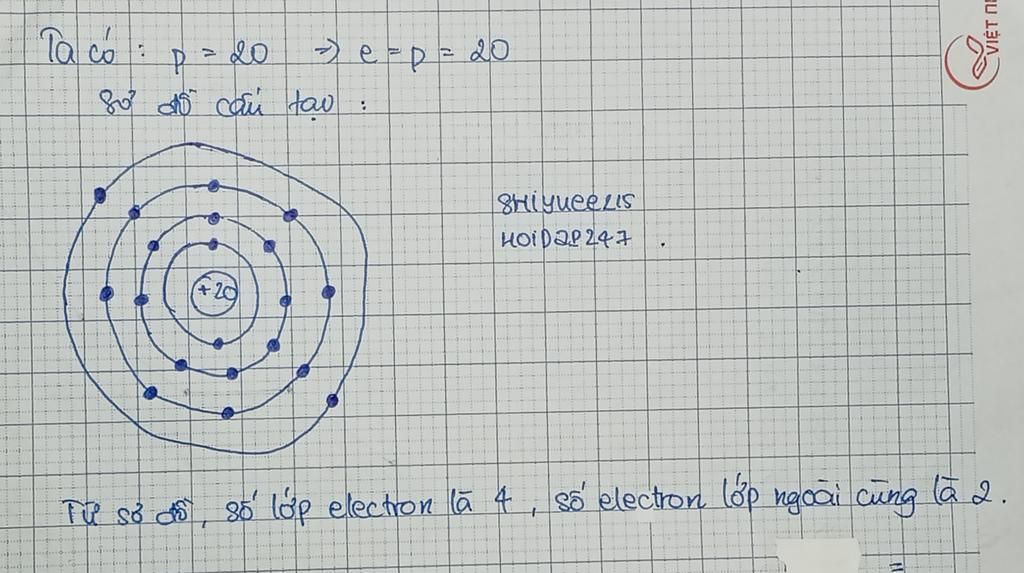 Ta có : p = 20 => e = p = 20
Sơ đồ cấu tạo :
SHIYUEELIS
HOIDAP247 .
+20
Từ sơ đồ, số lớp electron là 4, số electron lớp ngoài cùng là 2.
=